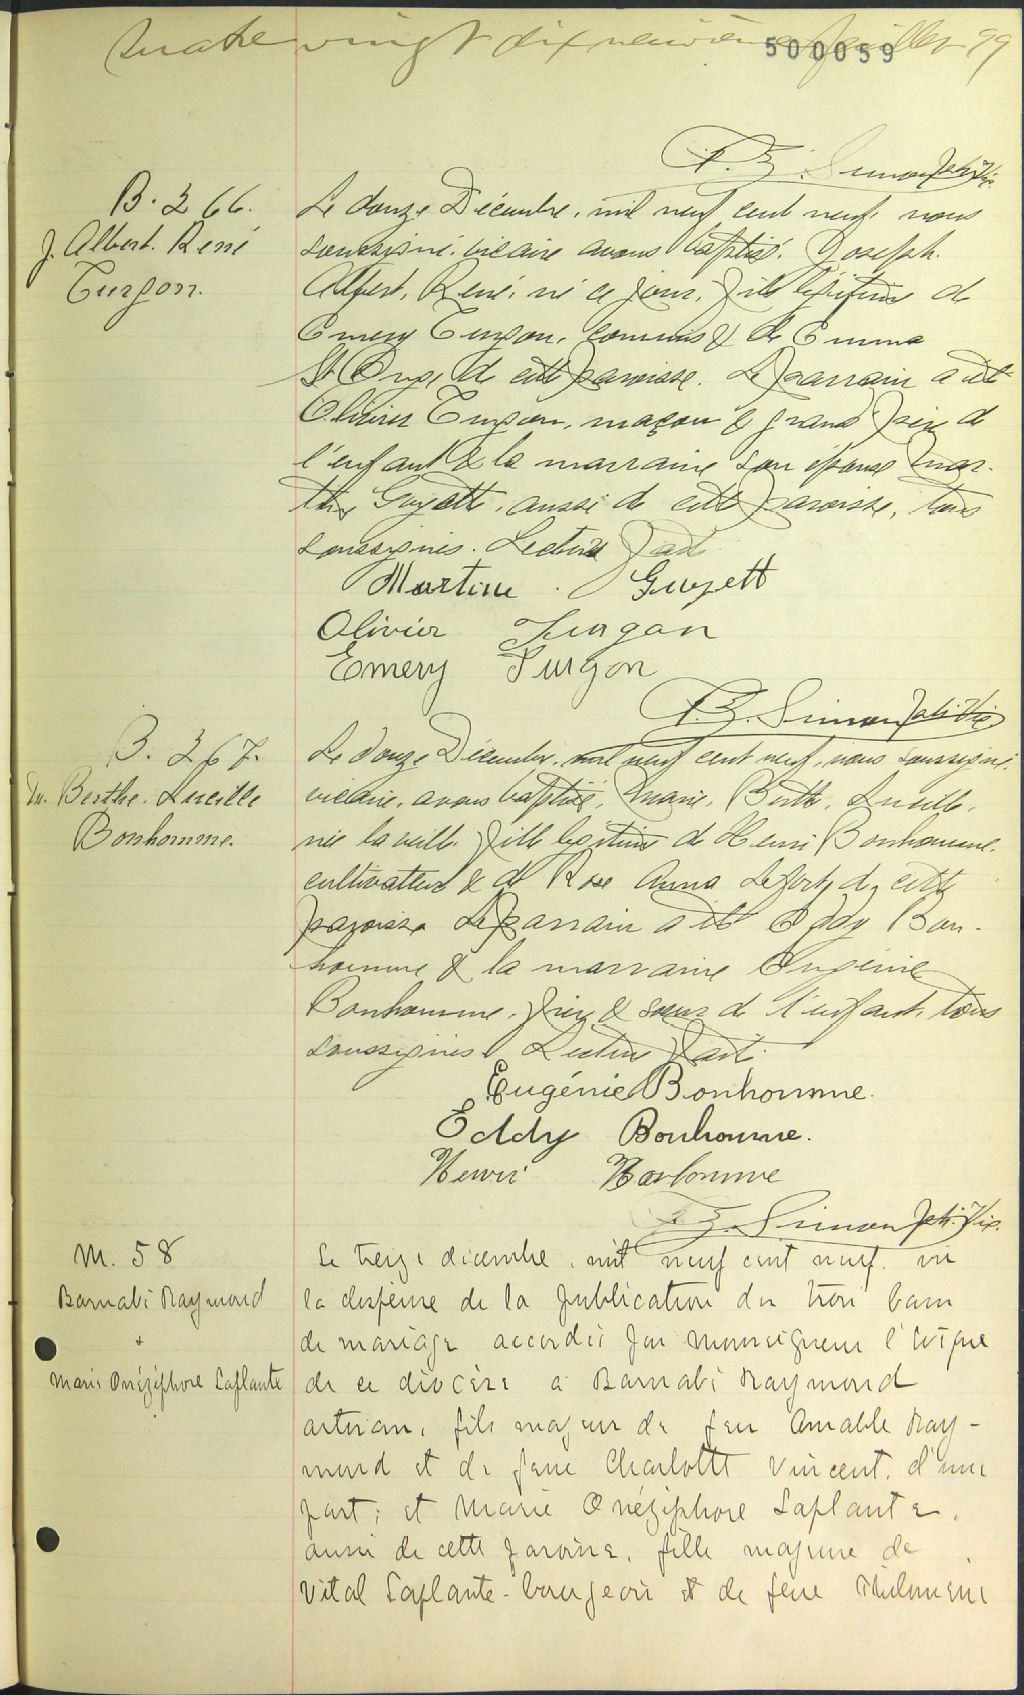 quatre vingt dix neuvième feuillet 99
500059
F. Z. Simon Ptre Vic.
B. 266.
J. Albert. René
Turgon.
Le douze Décembre, mil neuf cent neuf, nous
soussigné, vicaire avons baptisé, Joseph.
Albert, René, né ce jour, fils légitime de
Emery Turgon, commis & de Emma
St Onge de cette paroisse. Le parrain a été
Olivier Turgon, maçon & grand père de
l'enfant & la marraine son épouse Mar-
Guyette, aussi de cette paroisse, tous
soussignés. Lecture fait
Martine Guyett
Olivier Turgon
Emery Turgon
F. Z. Simon Ptre Vic
B. 267.
M. Berthe. Lucille
Bonhomme.
Le douze Décembre, mil neuf cent neuf, nous soussigné,
vicaire, avons baptisé, Marie, Berthe, Lucille,
née la veille, fille légitime de Henri Bonhomme,
cultivateur & de Rose Anna Lefort, de cette
paroisse. Le parrain a été Eddy Bon-
homme & la marraine Eugénie
Bonhomme, frère & soeur de l'enfant, tous
soussignés. Lecture fait.
Eugénie Bonhomme.
Eddy Bonhomme.
Henri Bonhomme
F. Z. Simon Ptre. Vic.
M. 58
Barnabé Raymond
+
Marie Onéziphore Laplante
Le treize décembre, mil neuf cent neuf, vu
la dispense de la publication des trois bans
de mariage accordée par Monseigneur l'évêque
de ce diocèse à Barnabé Raymond
artisan, fils majeur de feu Amable Ray-
mond et de feue Charlotte Vincent, d'une
part; et Marie Onéziphore Laplante,
aussi de cette paroisse, fille majeure de
Vital Laplante - bourgeois et de feue Philomène